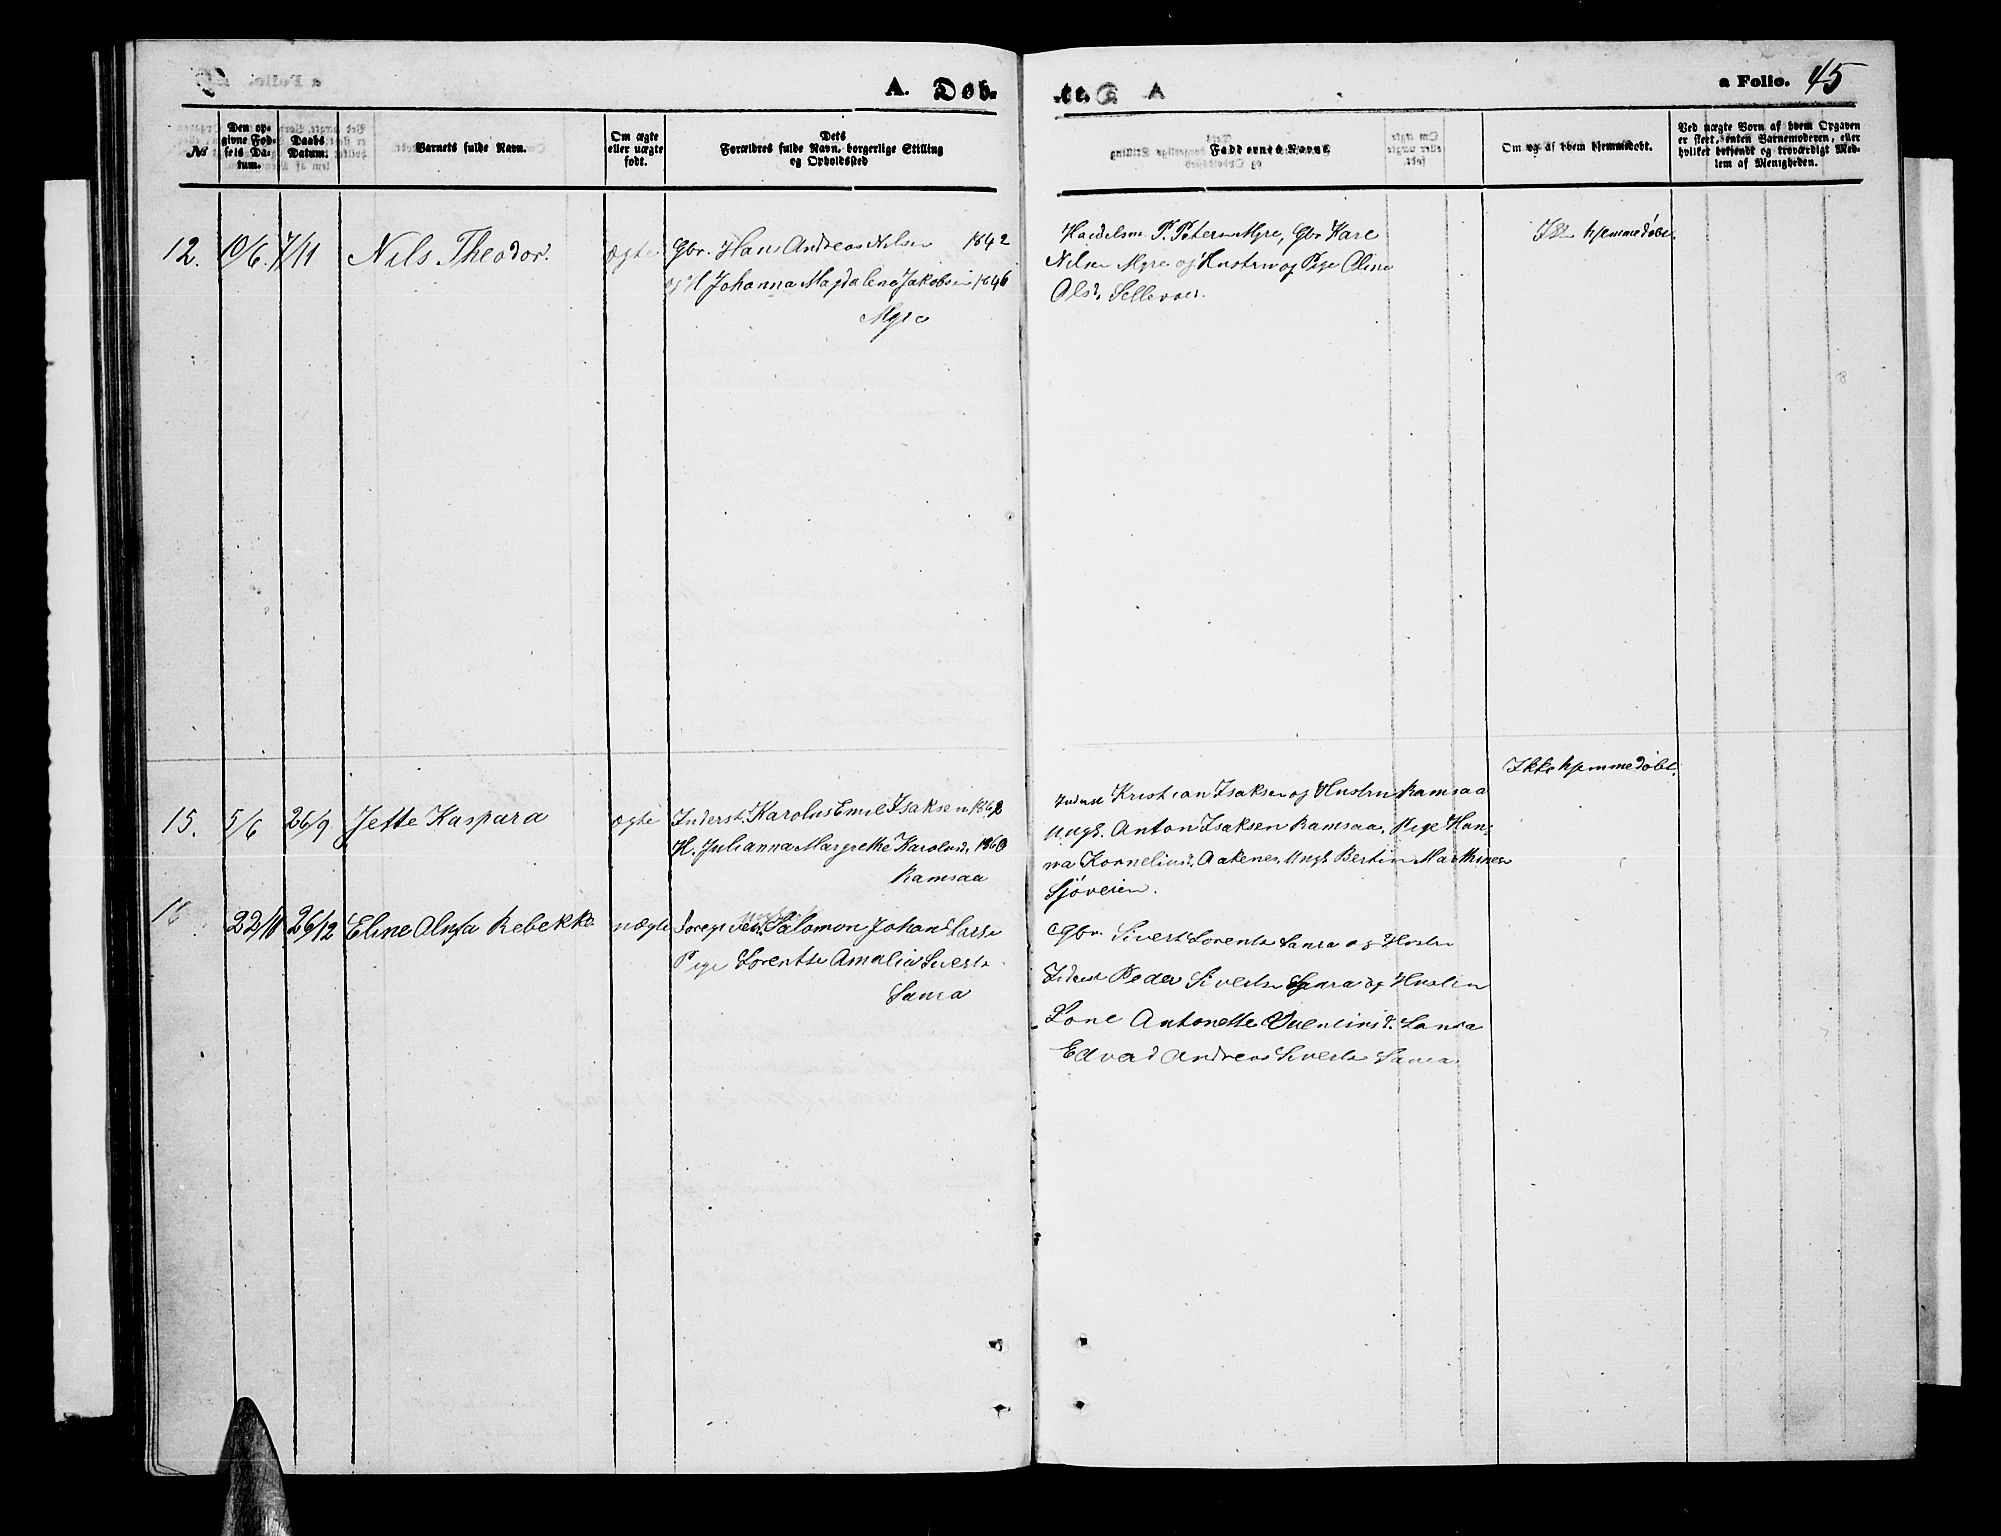 A. Døb-
te. A
a Folio. 45
No
Den op-
givne Fød-
sels Da-
tum.
Daabs
Datum.
Barnets fulde Navn.
Om ægte
eller uægte
født.
Dets
Forældres fulde Navn, borgerlige Stilling
og Opholdssted
Faddernes Navne
Om og af hvem hjemmedøbt.
Ved uægte Børn af hvem Opgaven
er skeet, enten Barnemoderen, eller
hvilket bekjendt og troværdigt Med-
lem af Menigheden.
12. 10/6. 7/11 Nils Theodor. ægte Gbr. Hans Andreas Nilsen 1842
og H Johanna Magdalena Jakobsen 1846
Myre
P. Petersen Myre, Gbr Kare
Nilsen Myre og Hustru og Pige Oline
Olsd.
hjemmedøbt.
15. 5/6 26/9 Jette Kaspara ægte Inderst. Karolus Emil Isaksen 1862
H. Julianna Margrethe Karolusd. 1860
Ramsaa
Inderst Kristian Isaksen og Hustru Ramsaa
Ungk. Anton Isaksen Ramsaa, Pige Han-
na Korneliusd. Aaknes, Ungk Bertin Marthinsen
Sjøveien.
Ikke hjemmedøbt.
22/11 26/12 Eline Olufa Rebekka uægte Ungk.
Salomon Johan Larse
Pige Lorentse Amalia Siverts
Sivert Lorents og Hustru
Inderst Peder Sivertsen og Hustru
Antonette
Edvard Andreas Siverts